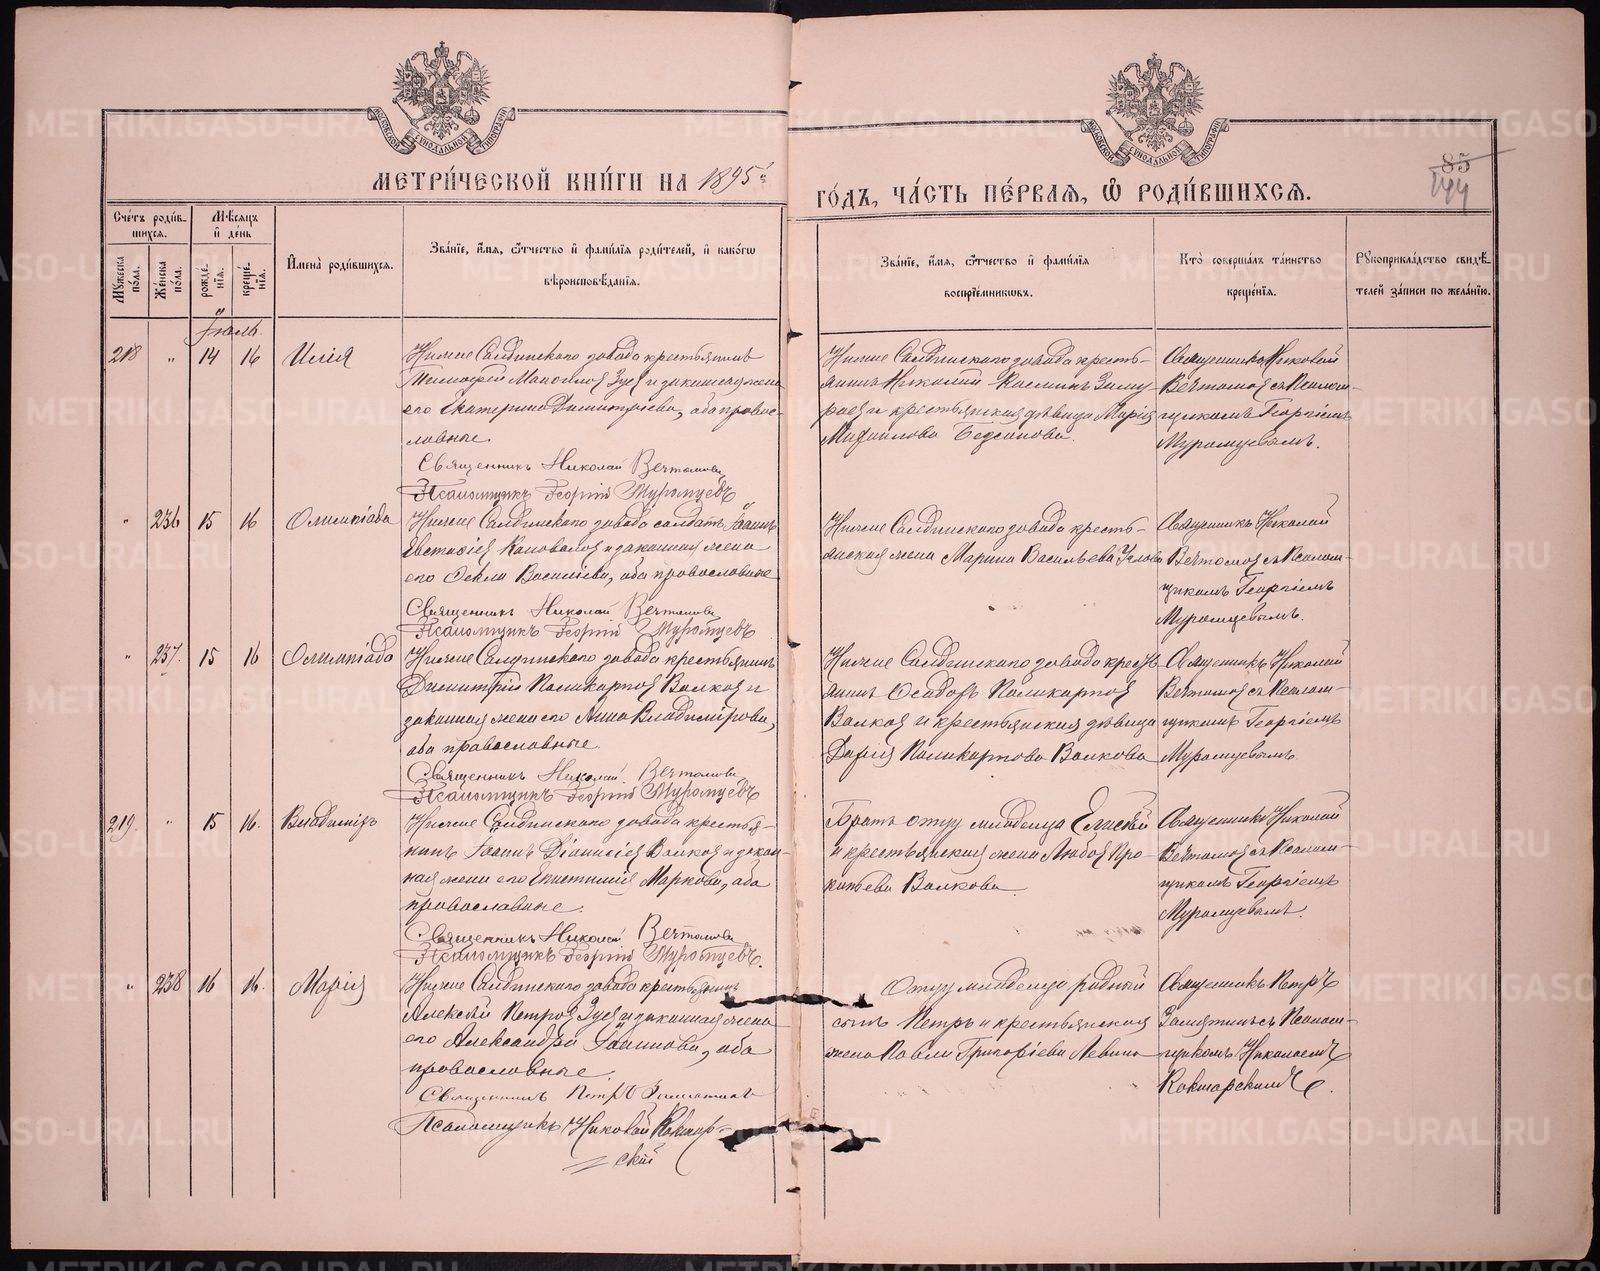 МОСКОВСКОЙ СУНОДАЛЬНОЙ ТИПОГРАФІИ
МОСКОВСКОЙ СУНОДАЛЬНОЙ ТИПОГРАФІИ
МЕТРИ́ЧЕСКОЙ КНИ́ГИ НА 1895й
ГО́ДЪ, ЧА́СТЬ ПЕ́РВАЯ, Ѡ РОДИ́ВШИХСЯ.
85
144
Сче́тъ роди́в-
шихся.
Мѣсяцъ
и де́нь
Мꙋ́жеска по́ла.
Же́нска по́ла.
рожде́-
нїя.
креще́-
нїя.
И҆мена̀ роди́вшихся.
Зва́нїе, и҆́мя, ѻ҆́тчество и҆ фами́лїя роди́телей, и҆ како́гѡ
вѣроисповѣ́данїя.
Зва́нїе, и҆́мя, ѻ҆́тчество и҆ фами́лїя
воспрїе́мникѡвъ.
Кто̀ соверша́лъ та́инство
креще́нїя.
Рꙋкоприкла́дство свидѣ́-
телей за́писи по жела́нїю.
Іюль.
218 " 14 16 Илія
Нижне Салдинскаго завода крестьянинъ
Тимофей Зуев и законная жена
его Екатерина Димитріева, оба правос-
лавные.
Священникъ Николай Вечтомовъ
Псаломщикъ Георгій Муромцевъ
Нижне Салдинскаго завода кресть-
янинъ Николай
и крестьянская дѣвица Марія
Михайлова
Священникъ Николай
Вечтомов съ Псалом-
щикомъ Георгіемъ
Муромцевымъ.
" 236 15 16 Олимпіада
Нижне Салдинскаго завода солдатъ Іоаннъ
Евстафіев Коновалов и законная жена
его Ѳекла Василіева, оба православные
Священникъ Николай Вечтомовъ
Псаломщикъ Георгій Муромцевъ
Нижне Салдинскаго завода кресть-
янская жена Марина Васильева
Священникъ Николай
Вечтомов съ Псалом-
щикомъ Георгіемъ
Муромцевымъ.
" 237. 15 16 Олимпіада
Нижне Салдинскаго завода крестьянинъ
Димитрій Поликарпов Волков и
законная жена его Анна Владимірова,
оба православные
Священникъ Николай Вечтомовъ
Псаломщикъ Георгій Муромцевъ
Нижне Салдинскаго завода кресть-
янинъ Ѳеодоръ Поликарпов
Волков и крестьянская дѣвица
Дарія Поликарпова Волкова
Священникъ Николай
Вечтомов съ Псалом-
щикомъ Георгіемъ
Муромцевымъ.
219. " 15 16. Владиміръ
Нижне Салдинскаго завода крестья-
нинъ Іоаннъ Діонисіев Волков и закон-
ная жена его Маркова, оба
православные.
Священникъ Николай Вечтомовъ
Псаломщикъ Георгій Муромцевъ.
Братъ отцу младенца Елисей
и крестьянская жена Любов Про-
копьева Волкова
Священникъ Николай
Вечтомов съ Псалом-
щикомъ Георгіемъ
Муромцевымъ.
" 238 16 16. Марія
Нижне Салдинскаго завода крестьянинъ
Алексѣй Петров Зуев и законная жена
его Александра Іоаннова, оба
православные.
Священникъ Петръ Замятинъ
Псаломщикъ Николай Кокшар-
скій
Отцу младенца родной
сынъ Петръ и крестьянская
жена Павла Григоріева Левина
Священникъ Петръ
Замятинъ съ Псалом-
щикомъ Николаемъ
Кокшарскимъ.
METRIKI.GASO-URAL.RU